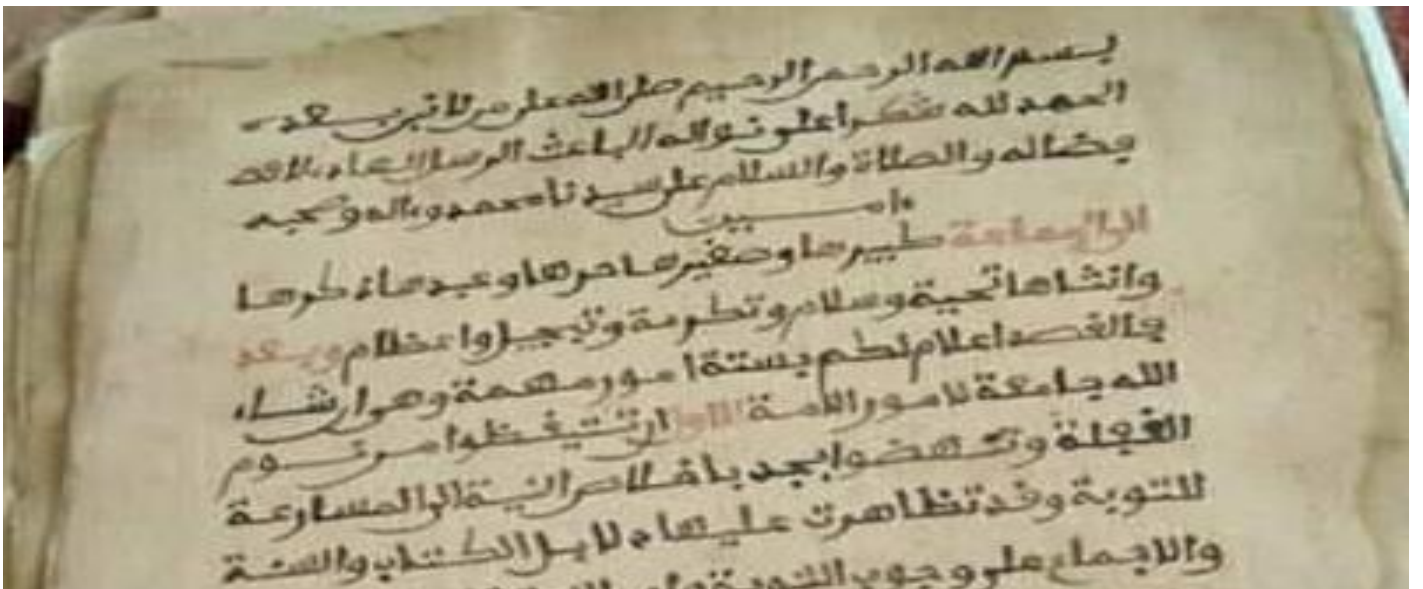 بسم الله الرحمن الرحيم صلى الله على من لا نبي بعده
الحمد لله شكرا على نواله الباعث الرسل
بضاله والصلاة والسلام على سيدنا محمد وءاله وصحبه
ءاميـــن
الى الجماعة كبيرها وصغيرها حرها وعبدها ذكرها
وانثاها تحية وسلام وتكرمة وتبجيل واعظام وبعد
فالقصد اعلامكم بستة امور مهمة وهى ان شاء
الله جامعة لامور الامة الاول ان تتيقظوا من نوم
الغفلة وتنهضوا بجد باخلاص النية الى المسارعة
للتوبة وقد تظاهرت عليها دلايل الكتاب والسنة
والاجماع على وجوب التوبة